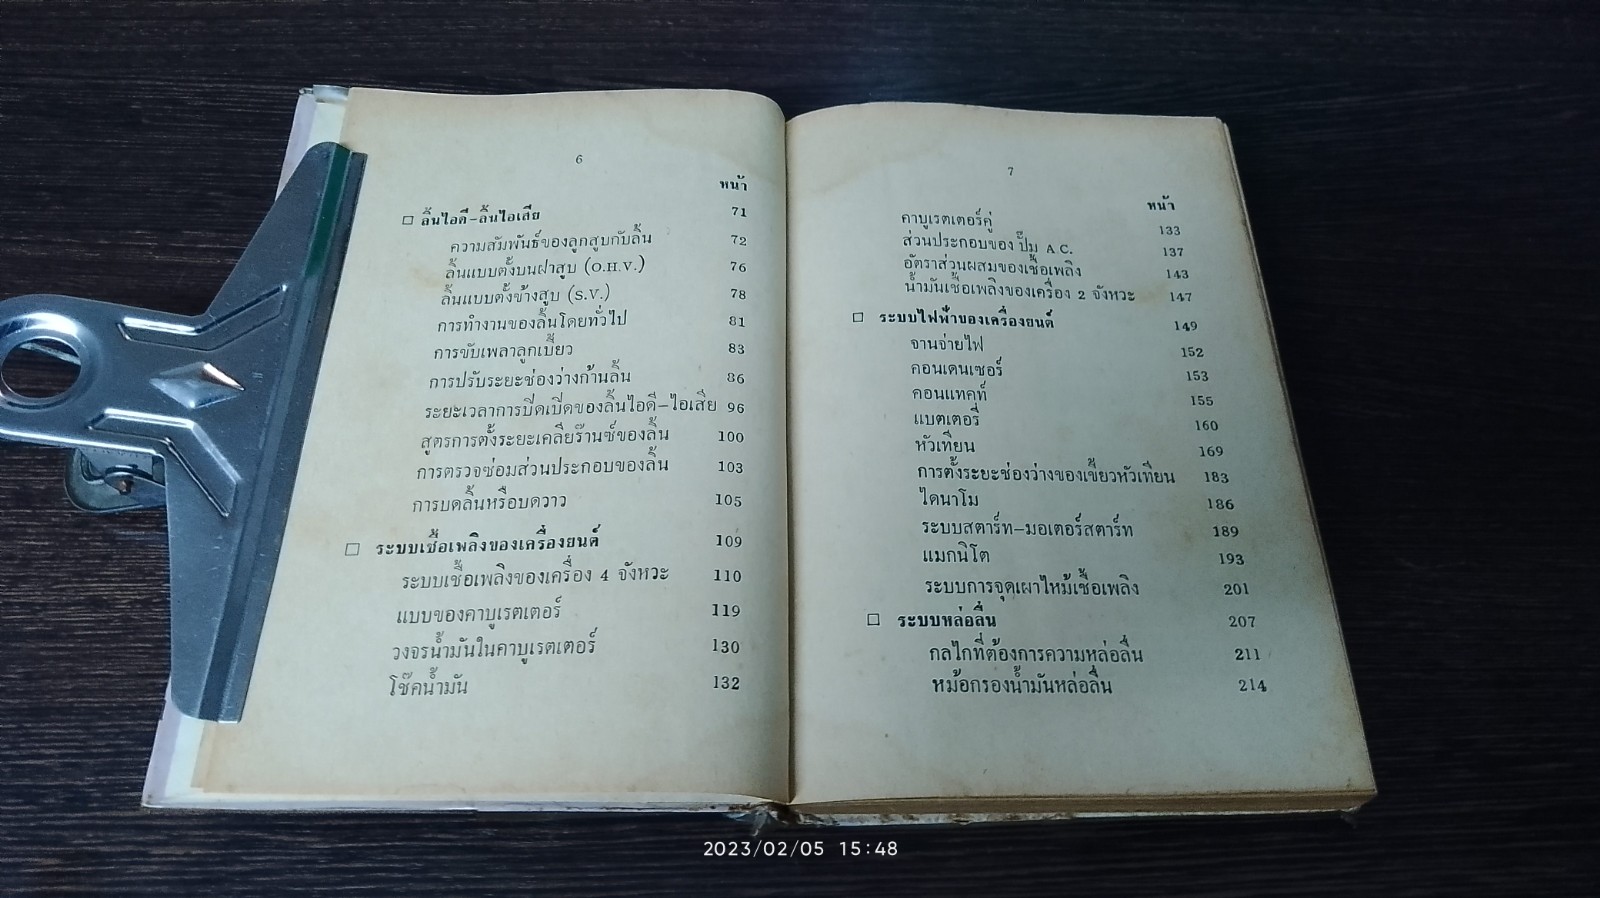 6
หน้า
□ ลิ้นไอดี-ลิ้นไอเสีย 71
ความสัมพันธ์ของลูกสูบกับลิ้น 72
ลิ้นแบบตั้งบนฝาสูบ (O.H.V.) 76
ลิ้นแบบตั้งข้างสูบ (S.V.) 78
การทำงานของลิ้นโดยทั่วไป 81
การขับเพลาลูกเบี้ยว 83
การปรับระยะช่องว่างก้านลิ้น 86
ระยะเวลาการปิดเปิดของลิ้นไอดี-ไอเสีย 96
สูตรการตั้งระยะเคลียร๊านซ์ของลิ้น 100
การตรวจซ่อมส่วนประกอบของลิ้น 103
การบดลิ้นหรือบดวาว 105
□ ระบบเชื้อเพลิงของเครื่องยนต์ 109
ระบบเชื้อเพลิงของเครื่อง 4 จังหวะ 110
แบบของคาบูเรตเตอร์ 119
วงจรน้ำมันในคาบูเรตเตอร์ 130
โช๊คน้ำมัน 132
7
หน้า
คาบูเรตเตอร์คู่ 133
ส่วนประกอบของ ปั๊ม A C. 137
อัตราส่วนผสมของเชื้อเพลิง 143
น้ำมันเชื้อเพลิงของเครื่อง 2 จังหวะ 147
□ ระบบไฟฟ้าของเครื่องยนต์ 149
จานจ่ายไฟ 152
คอนเดนเซอร์ 153
คอนแทคท์ 155
แบตเตอรี่ 160
หัวเทียน 169
การตั้งระยะช่องว่างของเขี้ยวหัวเทียน 183
ไดนาโม 186
ระบบสตาร์ท-มอเตอร์สตาร์ท 189
แมกนิโต 193
ระบบการจุดเผาไหม้เชื้อเพลิง 201
□ ระบบหล่อลื่น 207
กลไกที่ต้องการความหล่อลื่น 211
หม้อกรองน้ำมันหล่อลื่น 214
2023/02/05 15:48